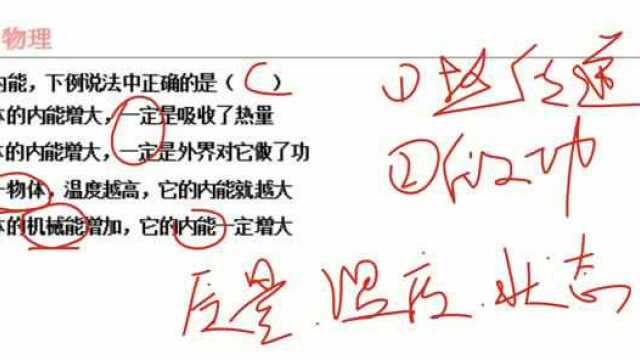 物理
内能，下例说法中正确的是（ C ）
体的内能增大，一定是吸收了热量
体的内能增大，一定是外界对它做了功
一物体，温度越高，它的内能就越大
体的机械能增加，它的内能一定增大
①热传递
②做功
质量、温度、状态